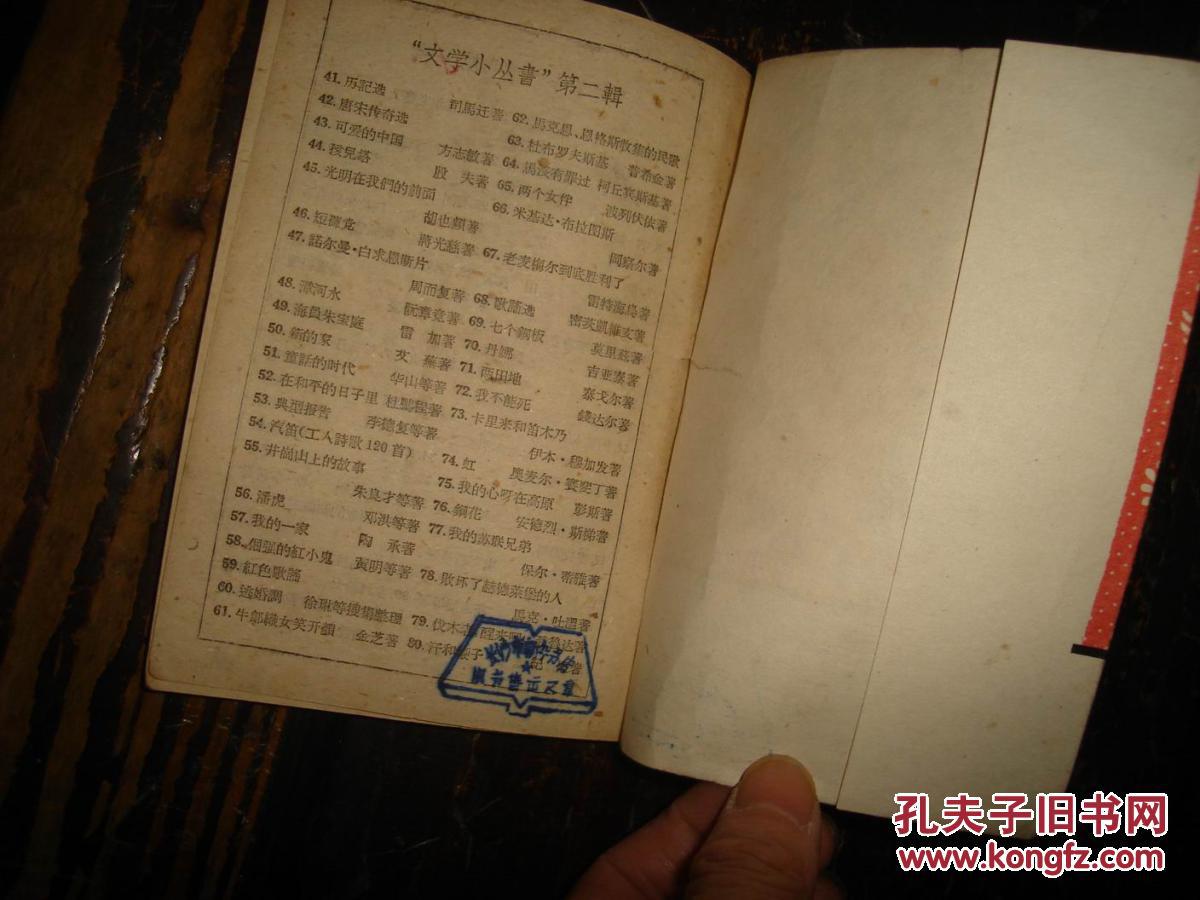 “文学小丛書”第二輯
41. 历記选 司馬迁著
42. 唐宋传奇选
43. 可爱的中国 方志敏著
44. 孩兒塔 殷 夫著
45. 光明在我們的前面 胡也頻著
46. 短褲党 蔣光慈著
47. 諾尔曼·白求恩断片 周而复著
48. 漳河水 阮章竞著
49. 海員朱宝庭 雷 加著
50. 新的家 艾 蕪著
51. 童話的时代 华山等著
52. 在和平的日子里 杜鵬程著
53. 典型报告 李德复等著
54. 汽笛(工人詩歌120首)
55. 井崗山上的故事 朱良才等著
56. 潘虎 邓洪等著
57. 我的一家 陶 承著
58. 倔强的紅小鬼 黃明等著
59. 紅色歌謠
60. 逃婚調 徐琳等搜集整理
61. 牛郎織女笑开顏 金芝著
62. 馬克思、恩格斯收集的民歌
63. 杜布罗夫斯基 普希金著
64. 没有罪过 柯丘宾斯基著
65. 两个女伴 波列伏依著
66. 米基达·布拉图斯 冈察尔著
67. 老麦梅尔到底胜利了 雷特海烏著
68. 歌謠选 密茨凱維支著
69. 七个銅板 莫里兹著
70. 丹娜 吉亚泰著
71. 两田地 泰戈尔著
72. 我不能死 錢达尔著
73. 卡里来和笛木乃 伊本·穆加发著
74. 虹 奧麦尔·賽斐丁著
75. 我的心呀在高原 彭斯著
76. 鋼花 安德烈·斯梯著
77. 我的苏联兄弟 保尔·蒂雅著
78. 敗坏了赫德萊堡的人 馬克·吐温著
79. 伐木者 醒来吧 著
80. 汗和 著
孔夫子旧书网
www.kongfz.com